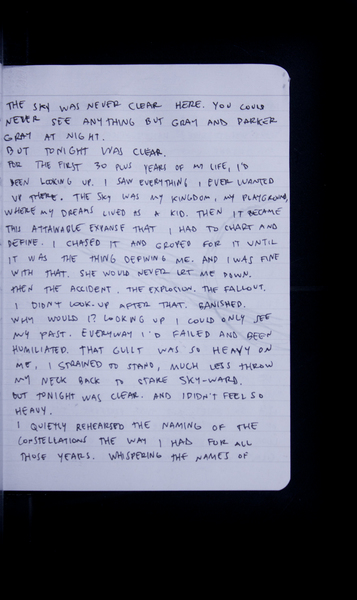 THE SKY WAS NEVER CLEAR HERE. YOU COULD
NEVER SEE ANYTHING BUT GRAY AND DARKER
GRAY AT NIGHT.
BUT TONIGHT WAS CLEAR.
FOR THE FIRST 30 PLUS YEARS OF MY LIFE, I'D
BEEN LOOKING UP. I SAW EVERYTHING I EVER WANTED
UP THERE. THE SKY WAS MY KINGDOM, MY PLAYGROUND,
WHERE MY DREAMS LIVED AS A KID. THEN IT BECAME
THIS ATTAINABLE EXPANSE THAT I HAD TO CHART AND
DEFINE. I CHASED IT AND GROPED FOR IT UNTIL
IT WAS THE THING DEFINING ME. AND I WAS FINE
WITH THAT. SHE WOULD NEVER LET ME DOWN.
THEN THE ACCIDENT. THE EXPLOSION. THE FALLOUT.
I DIDN'T LOOK UP AFTER THAT. BANISHED.
WHY WOULD I? LOOKING UP I COULD ONLY SEE
MY PAST. EVERYWAY I'D FAILED AND BEEN
HUMILIATED. THAT GUILT WAS SO HEAVY ON
ME, I STRAINED TO STAND, MUCH LESS THROW
MY NECK BACK TO STARE SKY-WARD.
BUT TONIGHT WAS CLEAR. AND I DIDN'T FEEL SO
HEAVY.
I QUIETLY REHEARSED THE NAMING OF THE
CONSTELLATIONS THE WAY I HAD FOR ALL
THOSE YEARS. WHISPERING THE NAMES OF